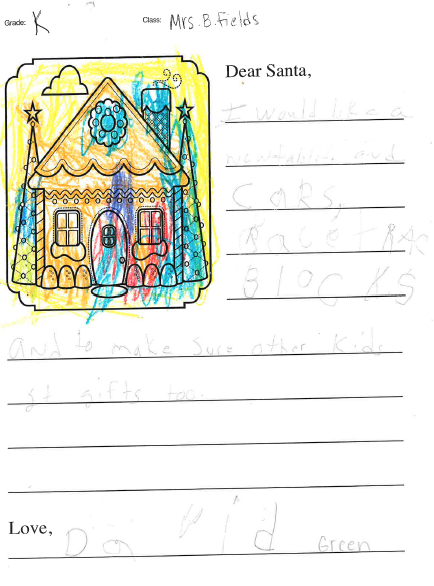 Grade: K Class: Mrs. B. Fields
Dear Santa,
I would like a
and
CARS,
Race tRAC
BlOCKS
And to make sure other kids
gt gifts too.
Love, David Green